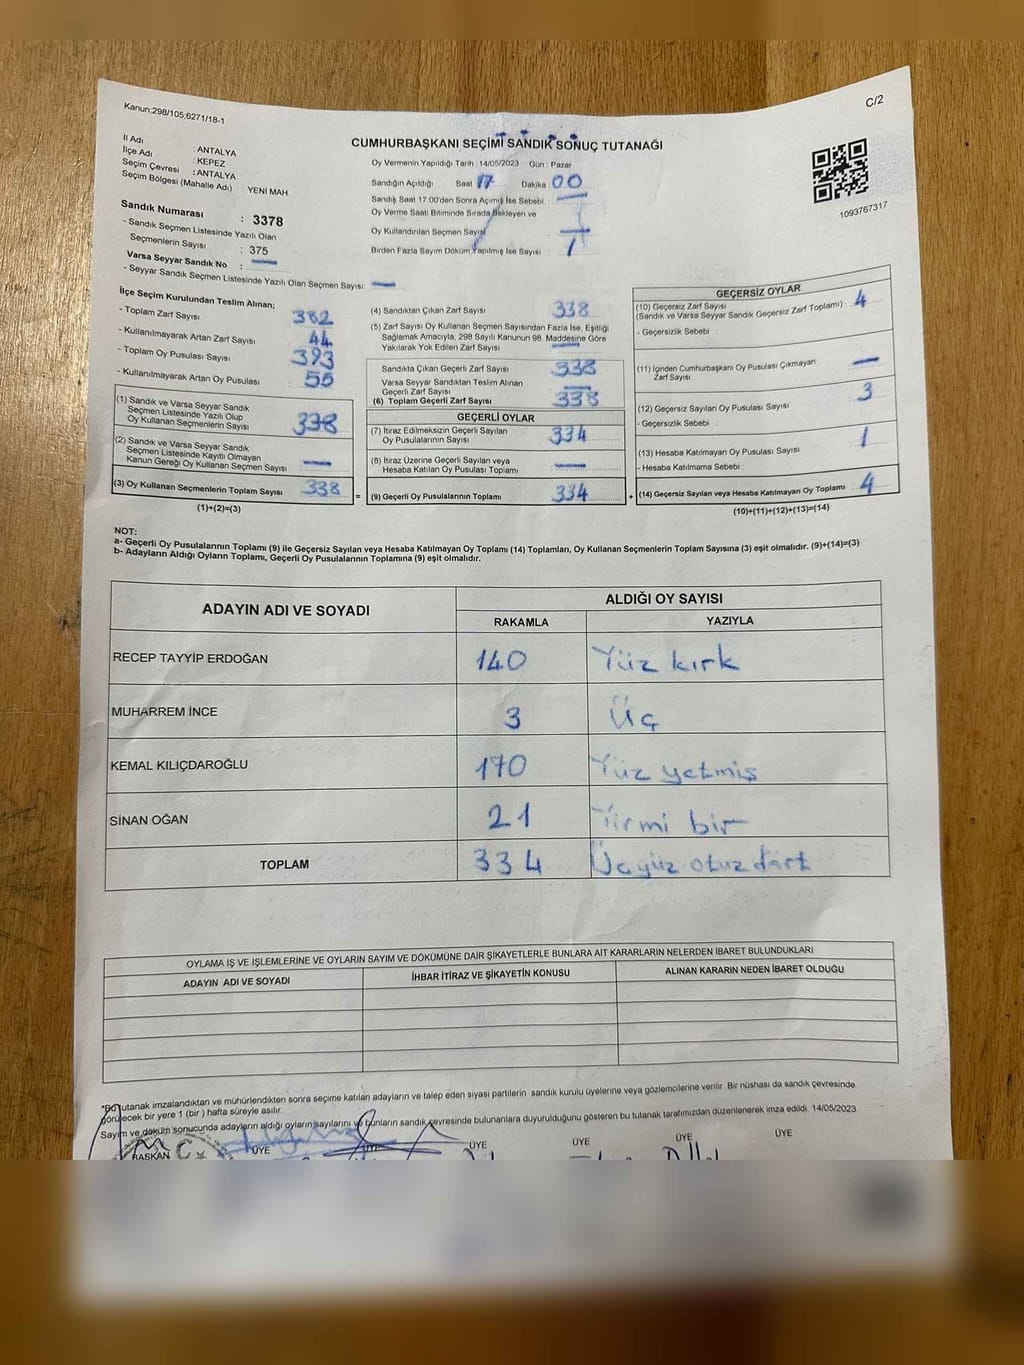 Kanun:298/105,6271/18-1
C/2
İl Adı : ANTALYA
İlçe Adı : KEPEZ
Seçim Çevresi : ANTALYA
Seçim Bölgesi (Mahalle Adı) : YENİ MAH.
Sandık Numarası : 3378
- Sandık Seçmen Listesinde Yazılı Olan
Seçmenlerin Sayısı : 375
Varsa Seyyar Sandık No : —
- Seyyar Sandık Seçmen Listesinde Yazılı Olan Seçmen Sayısı: —
CUMHURBAŞKANI SEÇİMİ SANDIK SONUÇ TUTANAĞI
Oy Vermenin Yapıldığı Tarih : 14/05/2023 Gün : Pazar
Sandığın Açıldığı Saat 17 Dakika : 00
Sandık Saat 17:00'den Sonra Açımış İse Sebebi : —
Oy Verme Saati Bitiminde Sırada Bekleyen ve
Oy Kullandırılan Seçmen Sayısı : —
Birden Fazla Sayım Döküm Yapılmış İse Sayısı : 1
1093767317
İlçe Seçim Kurulundan Teslim Alınan;
- Toplam Zarf Sayısı 382
- Kullanılmayarak Artan Zarf Sayısı 44
- Toplam Oy Pusulası Sayısı 393
- Kullanılmayarak Artan Oy Pusulası 55
(1) Sandık ve Varsa Seyyar Sandık
Seçmen Listesinde Yazılı Olup
Oy Kullanan Seçmenlerin Sayısı 338
(2) Sandık ve Varsa Seyyar Sandık
Seçmen Listesinde Kayıtlı Olmayan
Kanun Gereği Oy Kullanan Seçmen Sayısı —
(3) Oy Kullanan Seçmenlerin Toplam Sayısı 338
(1)+(2)=(3)
(4) Sandıktan Çıkan Zarf Sayısı 338
(5) Zarf Sayısı Oy Kullanan Seçmen Sayısından Fazla İse, Eşitliği
Sağlamak Amacıyla; 298 Sayılı Kanunun 98. Maddesine Göre
Yakılarak Yok Edilen Zarf Sayısı —
Sandıkta Çıkan Geçerli Zarf Sayısı 338
Varsa Seyyar Sandıktan Teslim Alınan
Geçerli Zarf Sayısı —
(6) Toplam Geçerli Zarf Sayısı 338
GEÇERLİ OYLAR
(7) İtiraz Edilmeksizin Geçerli Sayılan
Oy Pusulalarının Sayısı 334
(8) İtiraz Üzerine Geçerli Sayılan veya
Hesaba Katılan Oy Pusulası Toplamı —
= (9) Geçerli Oy Pusulalarının Toplamı 334
GEÇERSİZ OYLAR
(10) Geçersiz Zarf Sayısı
(Sandık ve Varsa Seyyar Sandık Geçersiz Zarf Toplamı) : 4
- Geçersizlik Sebebi :
(11) İçinden Cumhurbaşkanı Oy Pusulası Çıkmayan
Zarf Sayısı —
(12) Geçersiz Sayılan Oy Pusulası Sayısı 3
- Geçersizlik Sebebi :
(13) Hesaba Katılmayan Oy Pusulası Sayısı 1
- Hesaba Katılmama Sebebi :
+ (14) Geçersiz Sayılan veya Hesaba Katılmayan Oy Toplamı 4
(10)+(11)+(12)+(13)=(14)
NOT:
a- Geçerli Oy Pusulalarının Toplamı (9) ile Geçersiz Sayılan veya Hesaba Katılmayan Oy Toplamı (14) Toplamları, Oy Kullanan Seçmenlerin Toplam Sayısına (3) eşit olmalıdır. (9)+(14)=(3)
b- Adayların Aldığı Oyların Toplamı, Geçerli Oy Pusulalarının Toplamına (9) eşit olmalıdır.
ADAYIN ADI VE SOYADI
ALDIĞI OY SAYISI
RAKAMLA YAZIYLA
RECEP TAYYİP ERDOĞAN 140 Yüz kırk
MUHARREM İNCE 3 Üç
KEMAL KILIÇDAROĞLU 170 Yüz yetmiş
SİNAN OĞAN 21 Yirmi bir
TOPLAM 334 Üçyüz otuz dört
OYLAMA İŞ VE İŞLEMLERİNE VE OYLARIN SAYIM VE DÖKÜMÜNE DAİR ŞİKAYETLERLE BUNLARA AİT KARARLARIN NELERDEN İBARET BULUNDUKLARI
ADAYIN ADI VE SOYADI İHBAR İTİRAZ VE ŞİKAYETİN KONUSU ALINAN KARARIN NEDEN İBARET OLDUĞU
*Bu tutanak imzalandıktan ve mühürlendikten sonra seçime katılan adayların ve talep eden siyasi partilerin sandık kurulu üyelerine veya gözlemcilerine verilir. Bir nüshası da sandık çevresinde
görülecek bir yere 1 (bir) hafta süreyle asılır.
Sayım ve döküm sonucunda adayların aldığı oyların sayılarını ve bunların sandık çevresinde bulunanlara duyurulduğunu gösteren bu tutanak tarafımızdan düzenlenerek imza edildi. 14/05/2023
BAŞKAN ÜYE ÜYE ÜYE ÜYE ÜYE